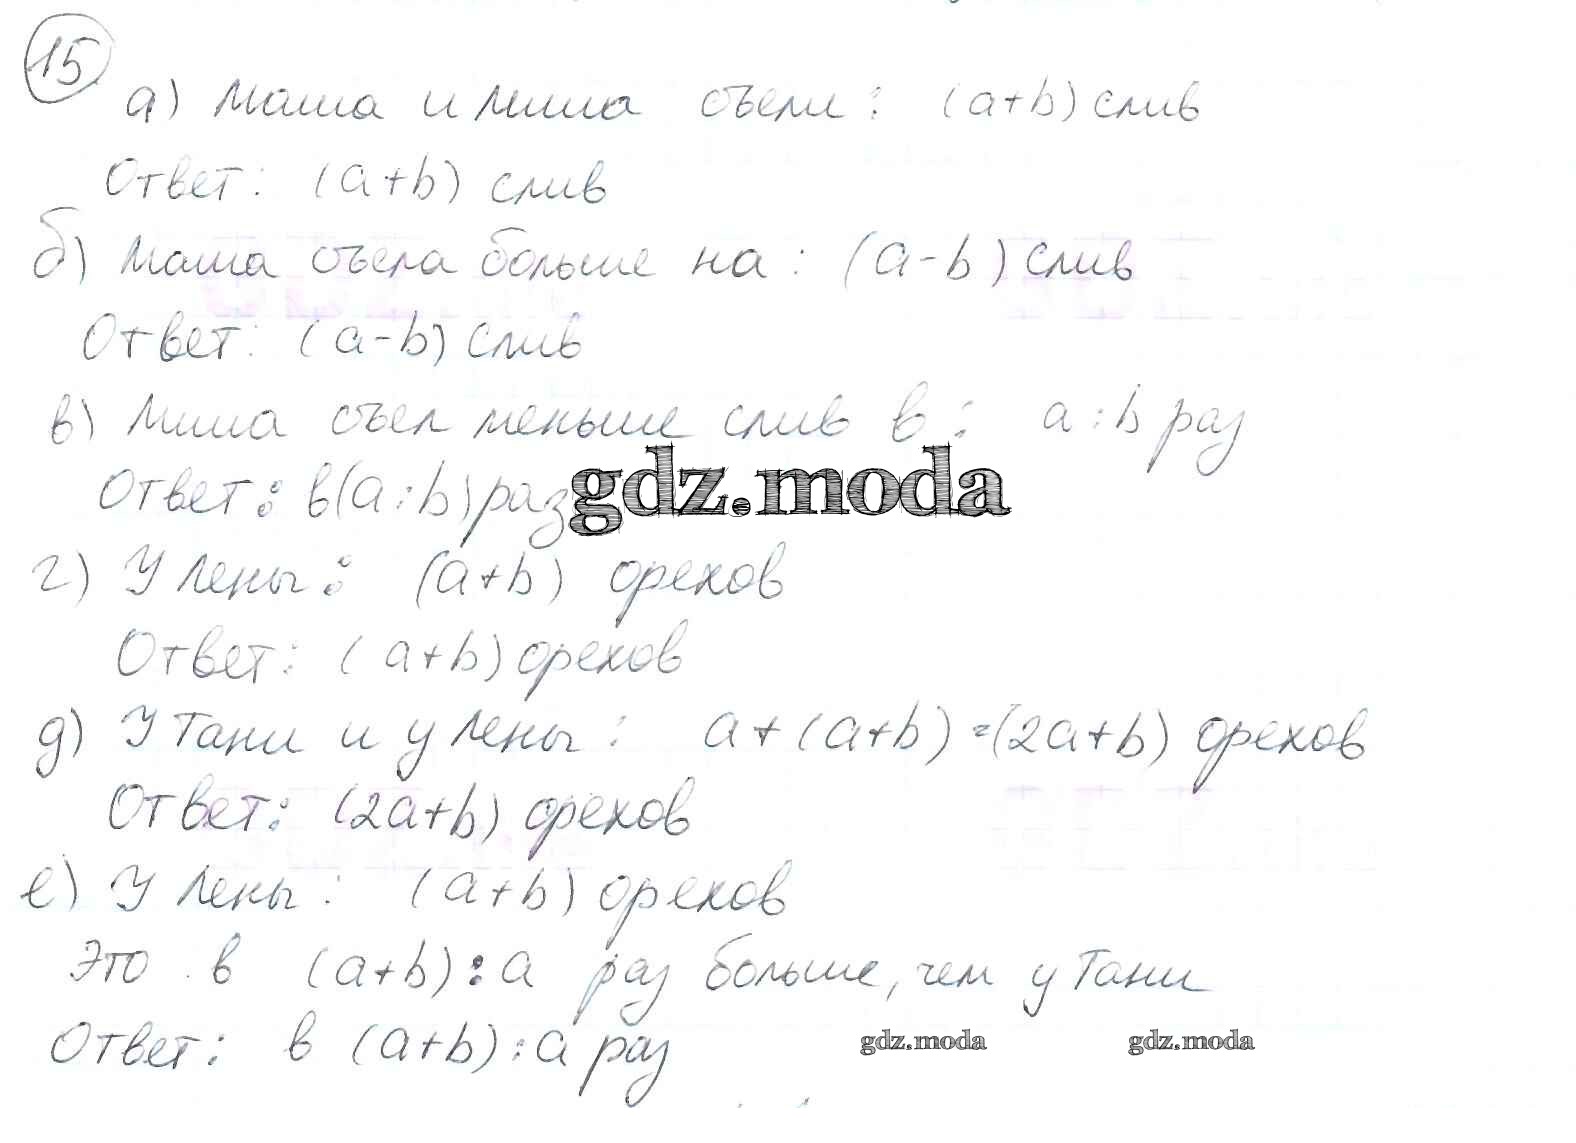 15
а) Маша и Миша съели: (a+b) слив
Ответ: (a+b) слив
б) Маша съела больше на: (a-b) слив
Ответ: (a-b) слив
в) Миша съел меньше слив в: a:b раз
Ответ: в (a:b) раз
gdz.moda
г) У Лены: (a+b) орехов
Ответ: (a+b) орехов
д) У Тани и у Лены: a+(a+b)=(2a+b) орехов
Ответ: (2a+b) орехов
е) У Лены: (a+b) орехов
Это в (a+b):a раз больше, чем у Тани
Ответ: в (a+b):a раз
gdz.moda gdz.moda